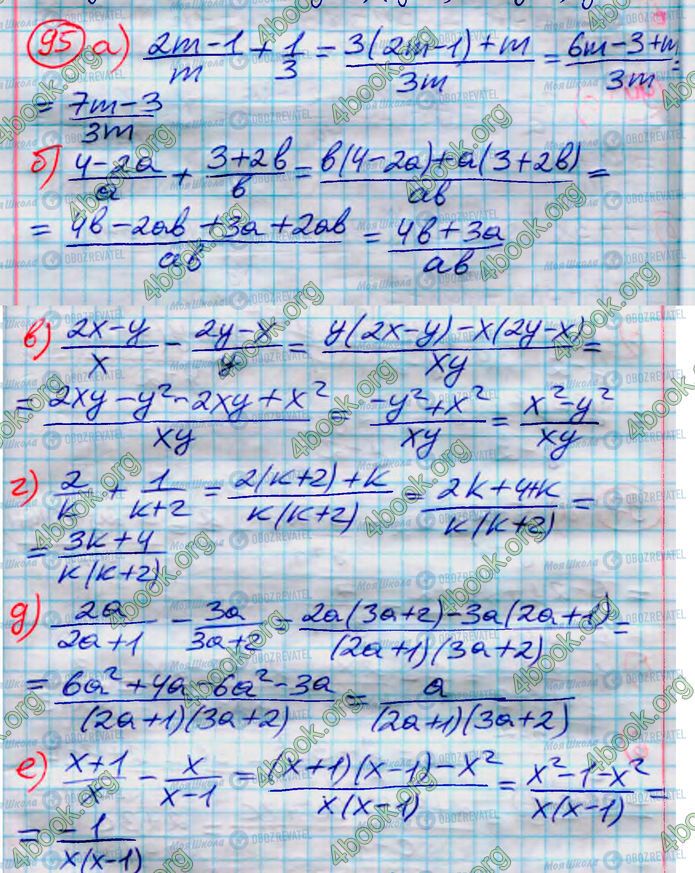 95 а) (2m-1)/m + 1/3 = (3(2m-1)+m)/3m = (6m-3+m)/3m =
= (7m-3)/3m
б) (4-2a)/a + (3+2b)/b = (b(4-2a)+a(3+2b))/ab =
= (4b-2ab+3a+2ab)/ab = (4b+3a)/ab
в) (2x-y)/x - (2y-x)/y = (y(2x-y)-x(2y-x))/xy =
= (2xy-y²-2xy+x²)/xy = (-y²+x²)/xy = (x²-y²)/xy
г) 2/k + 1/(k+2) = (2(k+2)+k)/k(k+2) = (2k+4+k)/k(k+2) =
= (3k+4)/k(k+2)
д) 2a/(2a+1) - 3a/(3a+2) = (2a(3a+2)-3a(2a+1))/(2a+1)(3a+2) =
= (6a²+4a-6a²-3a)/(2a+1)(3a+2) = a/(2a+1)(3a+2)
е) (x+1)/x - x/(x-1) = ((x+1)(x-1)-x²)/x(x-1) = (x²-1-x²)/x(x-1) =
= -1/x(x-1)
4book.org
Моя Школа
OBOZREVATEL